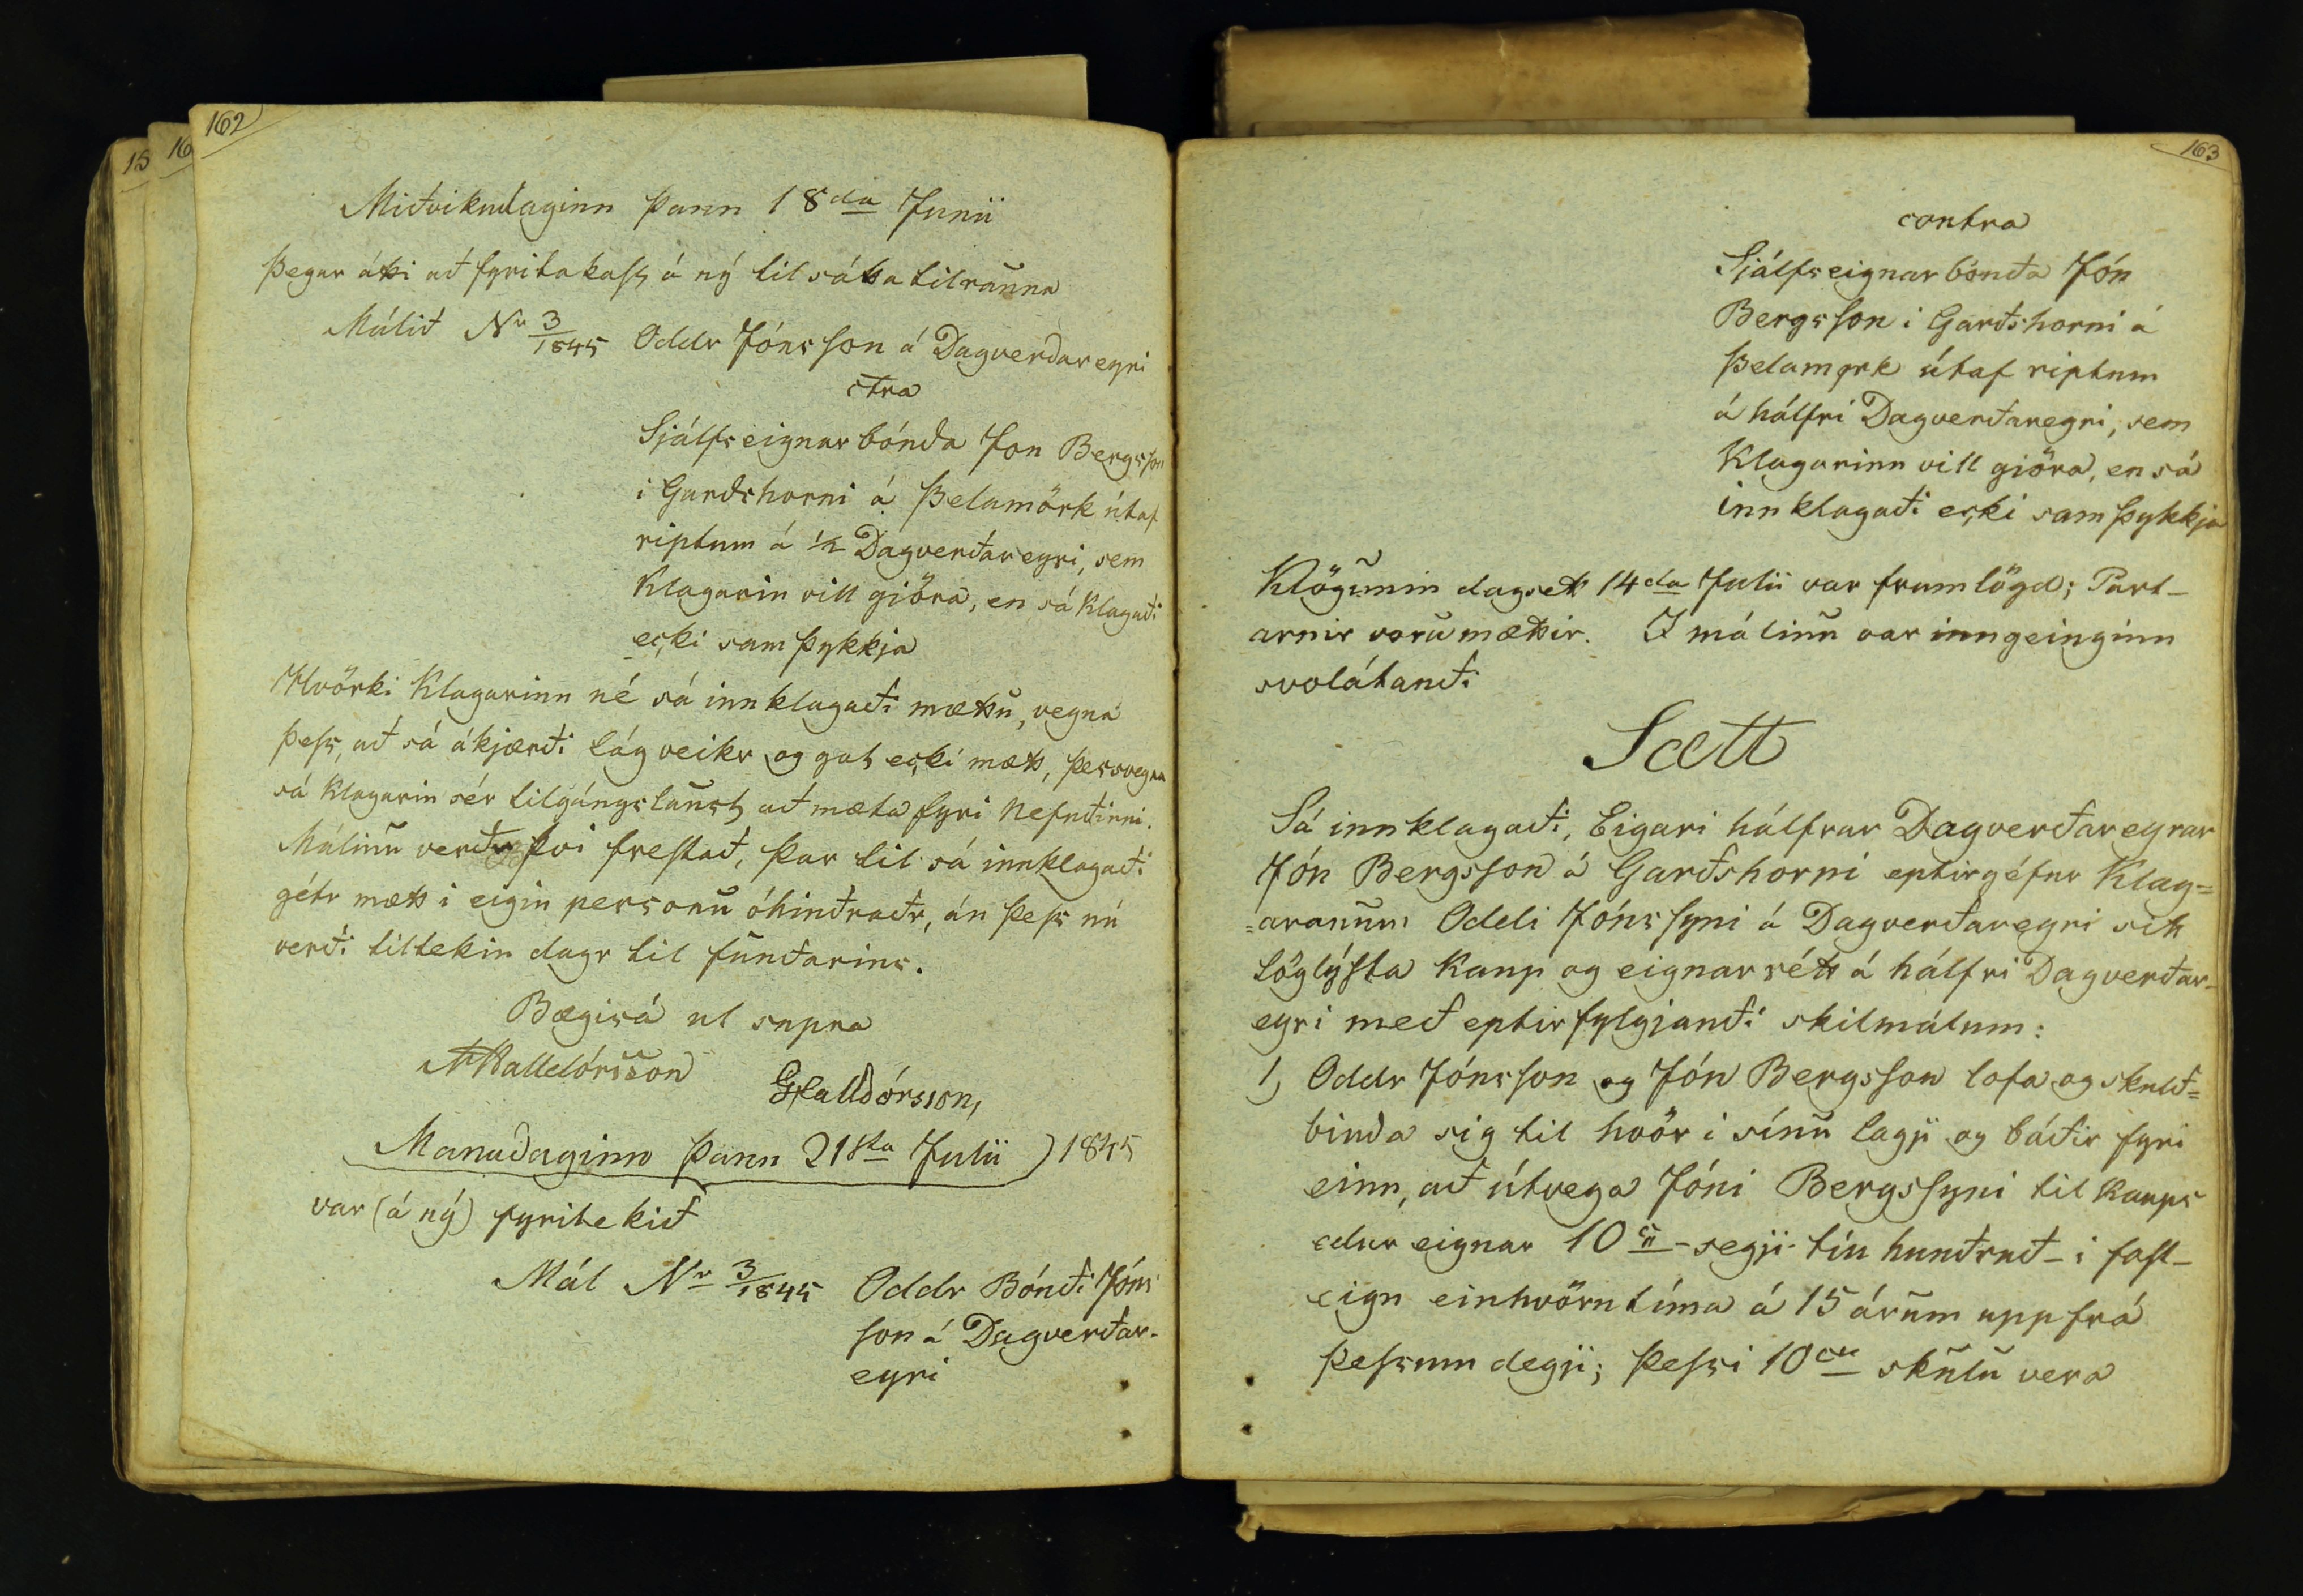 162
15
16
Miðvikudaginn þann 18da Junii
Þegar átti að fyritakast á ný til sátta tilrauna
Málið Nr 3/1845 Oddr Jónsson á Dagverðareyri
ctra
Sjálfseignarbónda Jon Bergsson
i Garðshorni á Þelamörk útaf
riptum á 1/2 Dagverðareyri, sem
Klagarin vill gjöra, en sá klagaði
ecki samþykkja
Hvörki Klagarinn né sá innklagaði mættu, vegna
þess, að sá ákjærði lág veikr og gat ecki mætt, þessvegna
sá Klagarin sér tilgángslaust að mæta fyri Nefndinni.
Málinu verðr því frestað, þar til sá innklagaði
gétr mætt i eigin personu óhindraðr, án þess nú
verði tiltekin dagr til fundarins.
Bægisá ut supra
NHalldórsson GHalldórsson,
Manudaginn þann 21sta Julii 1845
var (á ný) fyritekið
Mál Nr 3/1845 Oddr Bóndi Jóns
son á Dagverðar-
eyri
163
contra
Sjálfseignarbónda Jón
Bergsson i Garðshorni á
Þelamörk útaf riptum
á hálfri Dagverðareyri, sem
Klagarinn vill gjöra, en sá
innklagaði ecki samþykkja
Klögunin dagsett 14da Julii var framlögd; Part-
arnir voru mættir. I málinu var inngeinginn
svolátandi
Sætt
Sá innklagaði, Eigari hálfrar Dagverðareyrar
Jón Bergsson á Garðshorni eptirgéfur Klag=
=aranum Oddi Jónssyni á Dagverðareyri sitt
löglýsta Kaup og eignarrétt á hálfri Dagverðar-
eyri með eptirfylgjandi skilmálum:
1, Oddr Jónsson og Jón Bergsson lofa og skuld=
binda sig til hvör i sínu lagji og báðir fyri
einn, að útvega Jóni Bergssyni til Kaups
edur eignar 10 cu - segji tíu hundruð - i fast-
eign einhvörn tíma á 15 árum upp frá
þessum degji; þessi 10 cu skulu vera